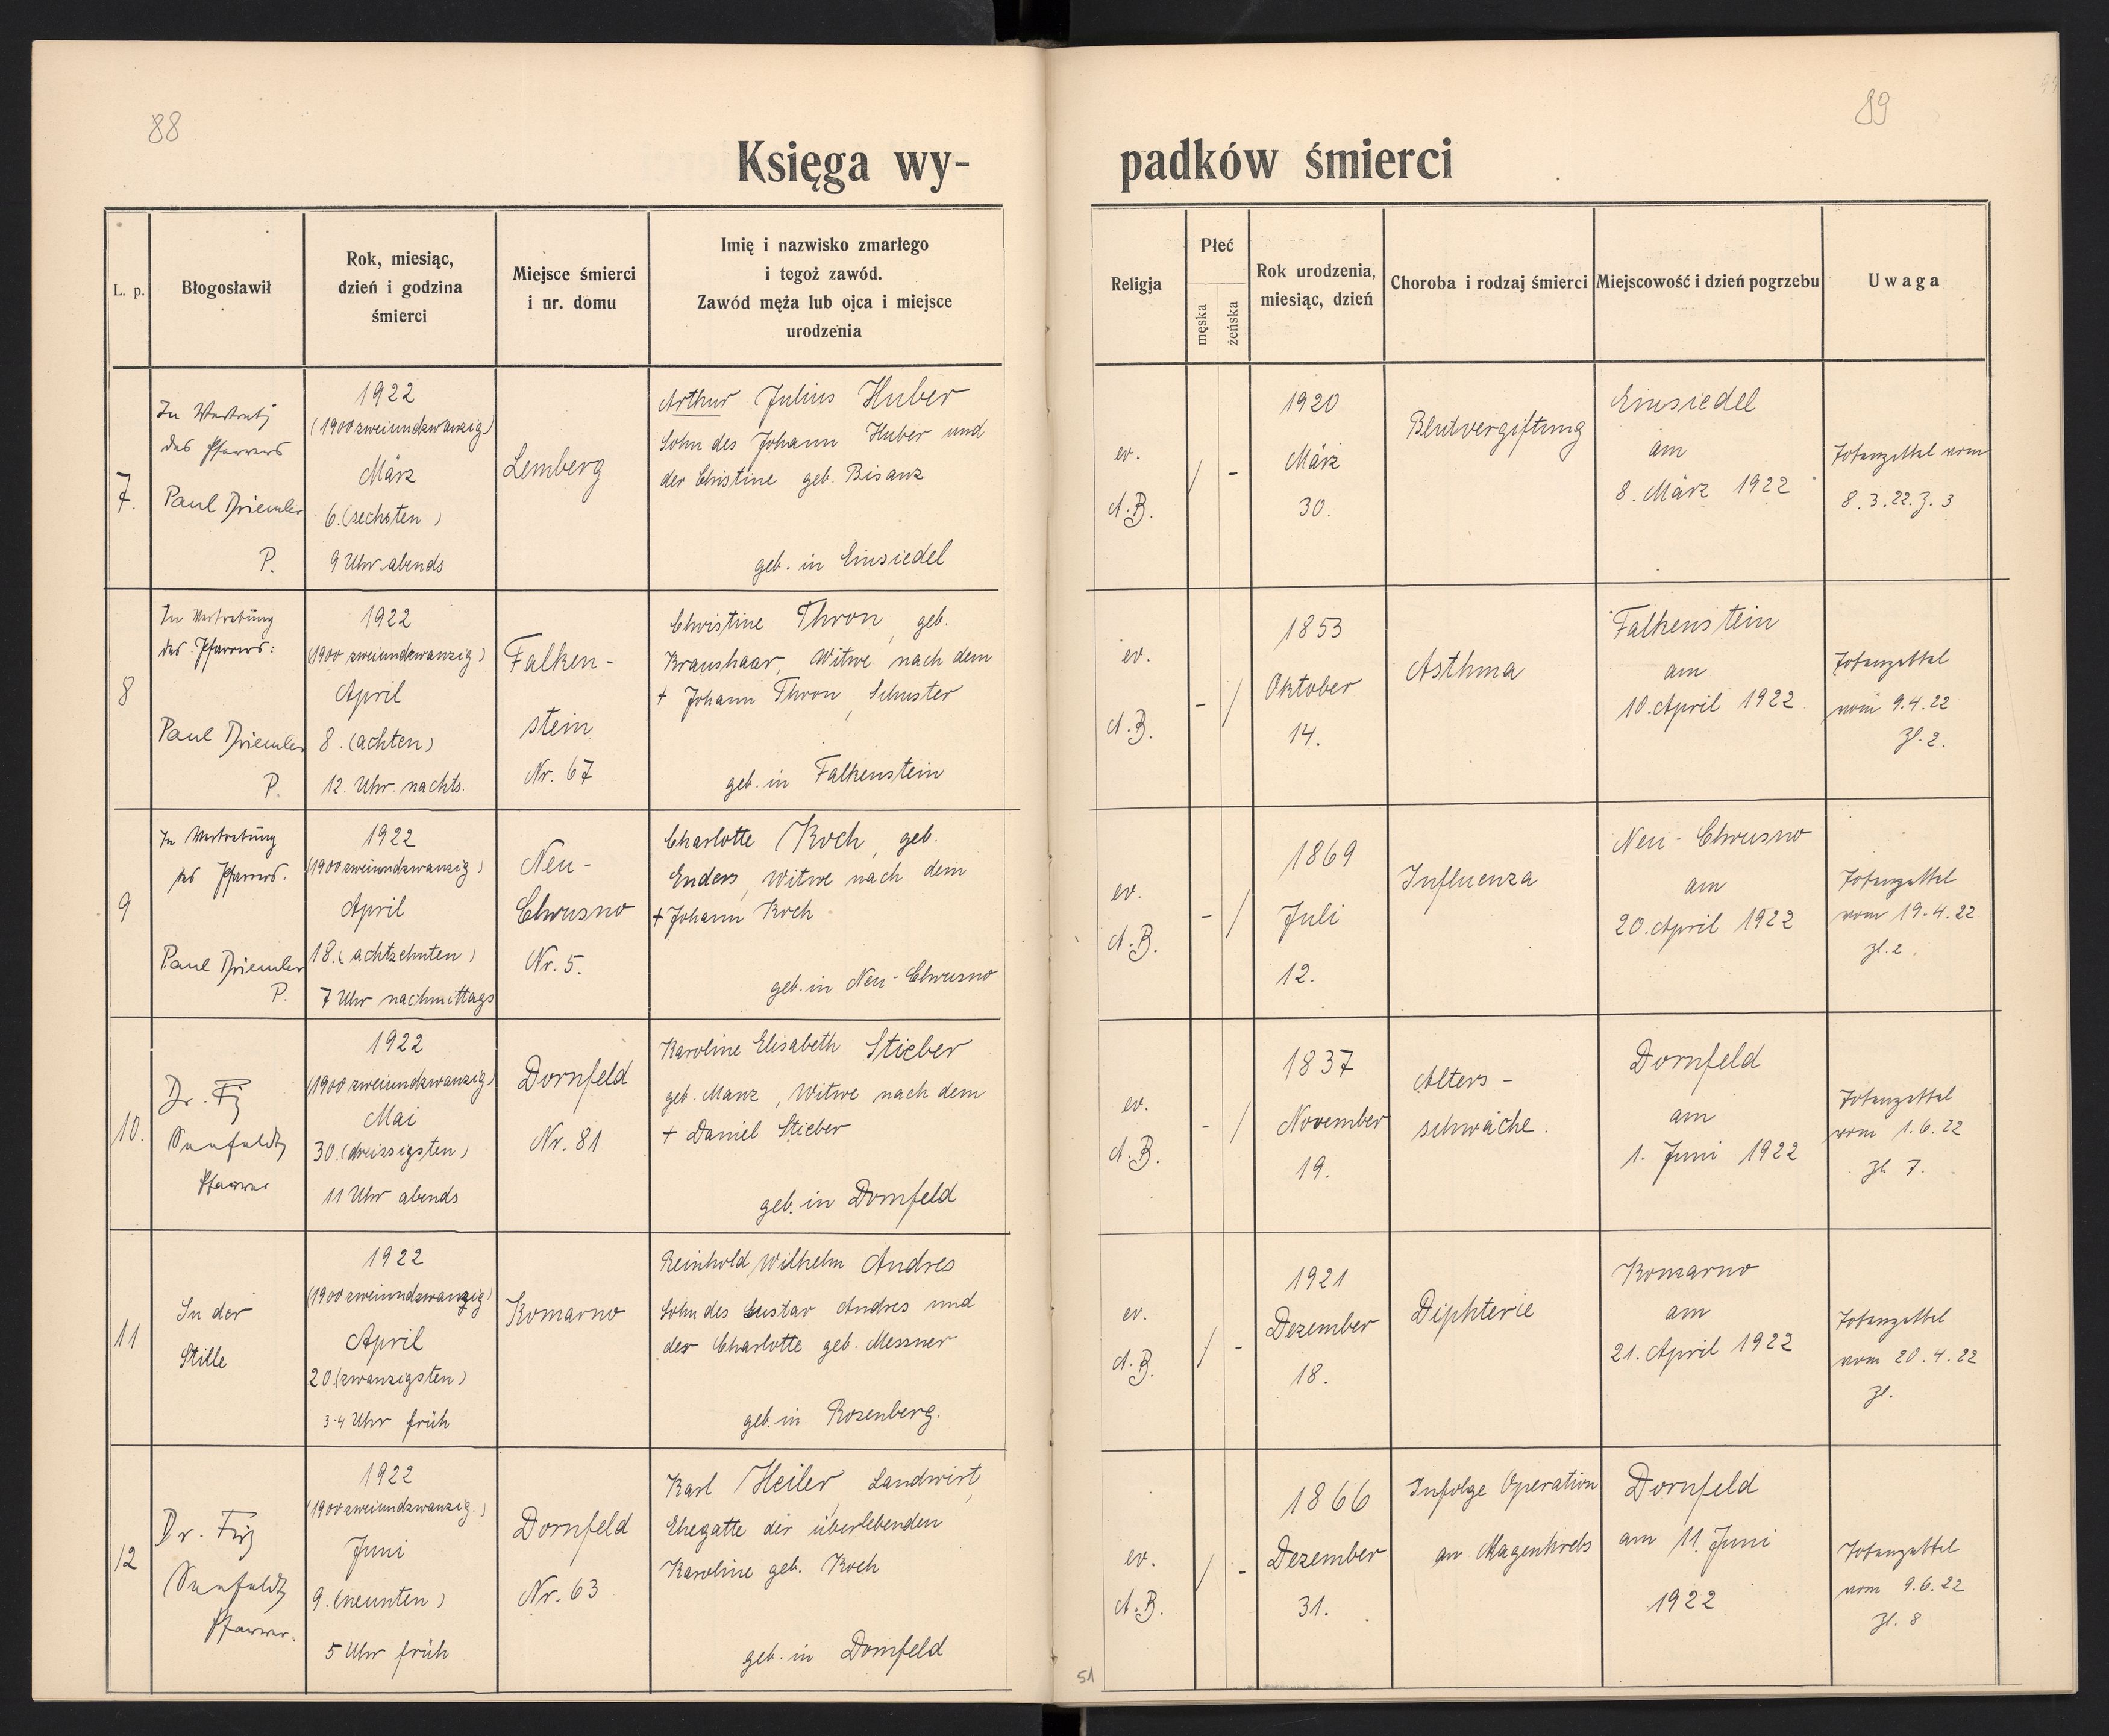 88
Księga wy-
L. p.
Błogosławił
Rok, miesiąc,
dzień i godzina
śmierci
Miejsce śmierci
i nr. domu
Imię i nazwisko zmarłego
i tegoż zawód.
Zawód męża lub ojca i miejsce
urodzenia
7.
In
des Pfarrers
Paul
P.
1922
(1900 zweiundzwanzig)
März
6. (sechsten)
9 Uhr abends
Lemberg
Arthur Julius Huber
Sohn des Johann Huber und
der Christine geb. Bisanz
geb. in Einsiedel
8
In Vertretung
des Pfarrers:
Paul
P.
1922
(1900 zweiundzwanzig)
April
8. (achten)
12. Uhr nachts.
Falken-
stein
Nr. 67
Christine Thron, geb.
Kraushaar, Witwe nach dem
+ Johann Thron, Schuster
geb. in Falkenstein
9
In Vertretung
des Pfarrers.
Paul
P.
1922
(1900 zweiundzwanzig)
April
18. (achtzehnten)
7 Uhr nachmittags
Neu-
Chrusno
Nr. 5.
Charlotte Koch, geb.
Enders, Witwe nach dem
+ Johann Koch
geb. in Neu-Chrusno
10.
Dr.
Seefeldt
Pfarrer
1922
(1900 zweiundzwanzig)
Mai
30. (dreissigsten)
11 Uhr abends
Dornfeld
Nr. 81
Karoline Elisabeth Stieber
geb. Manz, Witwe nach dem
+ Daniel Stieber
geb. in Dornfeld
11
In der
Stille
1922
(1900 zweiundzwanzig)
April
20 (zwanzigsten)
3-4 Uhr früh
Komarno
Reinhold Wilhelm Andres
Sohn des Gustav Andres und
der Charlotte geb. Messner
geb. in Rosenberg.
12
Dr.
Seefeldt
Pfarrer.
1922
(1900 zweiundzwanzig.)
Juni
9. (neunten)
5 Uhr früh
Dornfeld
Nr. 63
Karl Heiler, Landwirt,
Ehegatte der überlebenden
Karoline geb. Koch
geb. in Dornfeld
89
padków śmierci
Religja
Płeć
męska
żeńska
Rok urodzenia,
miesiąc, dzień
Choroba i rodzaj śmierci
Miejscowość i dzień pogrzebu
Uwaga
ev.
A.B.
/ -
1920
März
30.
Blutvergiftung
Einsiedel
am
8. März 1922
Totenzettel vom
8.3.22. Z. 3
ev.
A.B.
- /
1853
Oktober
14.
Asthma
Falkenstein
am
10. April 1922
Totenzettel
vom 9.4.22
Zl. 2.
ev.
A.B.
- /
1869
Juli
12.
Influenza
Neu-Chrusno
am
20. April 1922
Totenzettel
vom 19.4.22
Zl. 2.
ev.
A.B.
- /
1837
November
19.
Alters-
schwäche.
Dornfeld
am
1. Juni 1922
Totenzettel
vom 1.6.22
Zl. 7.
ev.
A.B.
/ -
1921
Dezember
18.
Diphterie
Komarno
am
21. April 1922
Totenzettel
vom 20.4.22
Zl.
ev.
A.B.
/ -
1866
Dezember
31.
Infolge Operation
an Magenkrebs
Dornfeld
am 11. Juni
1922
Totenzettel
vom 9.6.22
Zl. 8
51